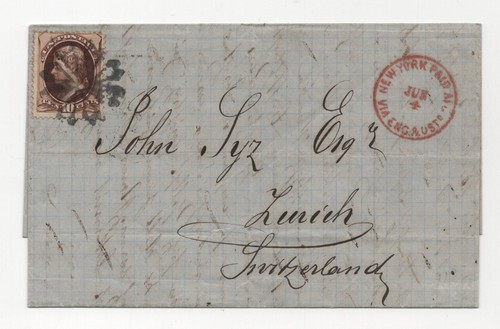 U.S. POSTAGE
NEW YORK PAID ALL
JUN
4
VIA ENG. & OSTD
John Syz Esqr
Zurich
Switzerland